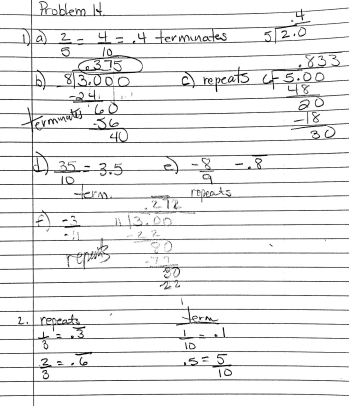 Problem 14.
1) a) 2/5 = 4/10 = .4 terminates
.4
5 2.0
b) .375
8 3.000
-24
60
-56
40
terminates
c) repeats
.833
6 5.00
48
20
-18
30
d) 35/10 = 3.5
term.
e) -8/9 -.8̅
repeats
f) -3/-11
repeats
.272
11 3.00
-22
80
-77
30
22
2. repeats
1/3 = .3̅
2/3 = .6̅
term
1/10 = .1
.5 = 5/10